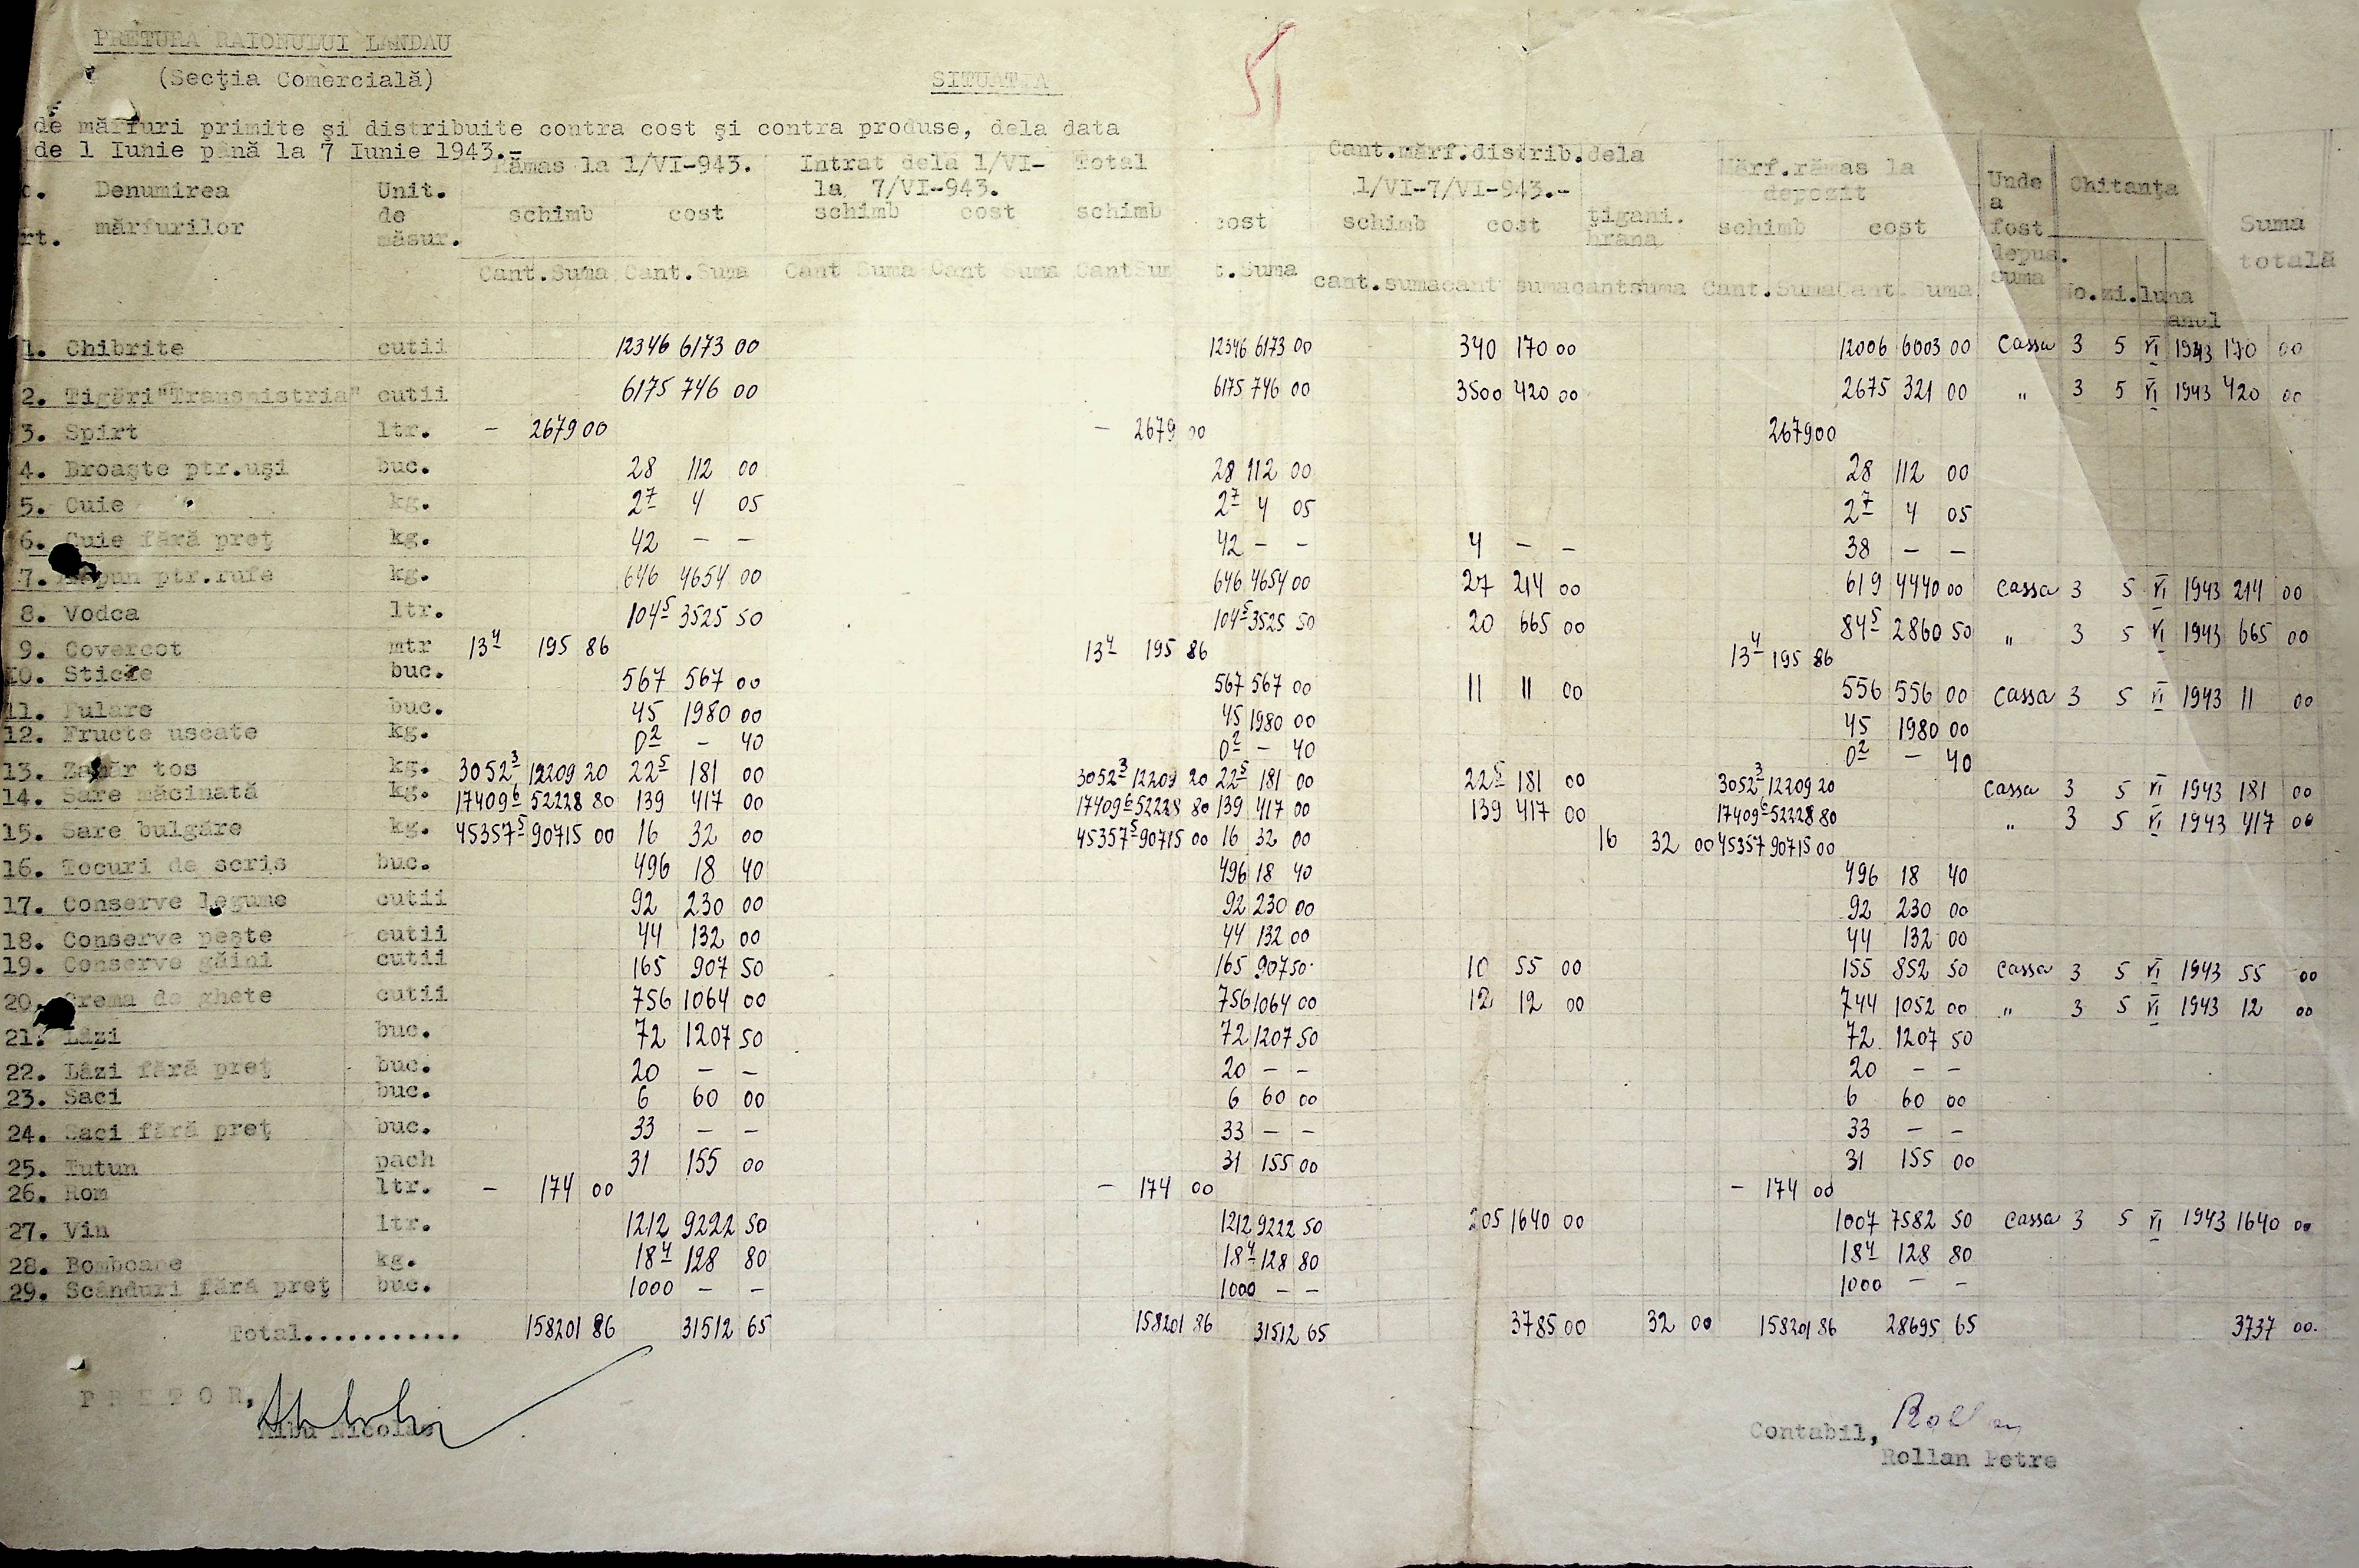 PRETURA RAIONULUI LANDAU
(Secţia Comercială)
SITUATIA
51
de mărfuri primite şi distribuite contra cost şi contra produse, dela data
de 1 Iunie până la 7 Iunie 1943.-
Denumirea mărfurilor Unit. de măsur. Rămas la 1/VI-943. Intrat dela 1/VI- la 7/VI-943. Total Cant.mărf.distrib.dela 1/VI-7/VI-943.- Mărf.rămas la depozit Unde a fost depus. suma Chitanţa Suma totală
schimb cost schimb cost schimb cost schimb cost ţigani. hrana schimb cost
Cant.Suma Cant.Suma Cant Suma Cant Suma Cant Sum t.Suma cant.suma cant suma cant suma Cant.Suma Cant.Suma No.zi.luna anul
1. Chibrite cutii 12346 6173 00 12346 6173 00 340 170 00 12006 6003 00 Cassa 3 5 VI 1943 170 00
2. Tigări"Transnistria" cutii 6175 746 00 6175 746 00 3500 420 00 2675 321 00 " 3 5 VI 1943 420 00
3. Spirt ltr. - 2679 00 - 2679 00 2679 00
4. Broaşte ptr.uşi buc. 28 112 00 28 112 00 28 112 00
5. Cuie kg. 2 7 4 05 2 7 4 05 2 7 4 05
6. Cuie fără preţ kg. 42 - - 42 - - 4 - - 38 - -
7. Săpun ptr.rufe kg. 646 4654 00 646 4654 00 27 214 00 619 4440 00 Cassa 3 5 VI 1943 214 00
8. Vodca ltr. 104 5 3525 50 104 5 3525 50 20 665 00 84 5 2860 50 " 3 5 VI 1943 665 00
9. Covercot mtr 13 4 195 86 13 4 195 86 13 4 195 86
10. Sticle buc. 567 567 00 567 567 00 11 11 00 556 556 00 Cassa 3 5 VI 1943 11 00
11. Fulare buc. 45 1980 00 45 1980 00 45 1980 00
12. Fructe uscate kg. 0 2 - 40 0 2 - 40 0 2 - 40
13. Zahăr tos kg. 3052 3 12209 20 22 5 181 00 3052 3 12209 20 22 5 181 00 22 5 181 00 3052 3 12209 20 Cassa 3 5 VI 1943 181 00
14. Sare măcinată kg. 17409 6 52228 80 139 417 00 17409 6 52228 80 139 417 00 139 417 00 17409 6 52228 80 " 3 5 VI 1943 417 00
15. Sare bulgăre kg. 45357 5 90715 00 16 32 00 45357 5 90715 00 16 32 00 16 32 00 45357 90715 00
16. Tocuri de scris buc. 496 18 40 496 18 40 496 18 40
17. Conserve legume cutii 92 230 00 92 230 00 92 230 00
18. Conserve peşte cutii 44 132 00 44 132 00 44 132 00
19. Conserve găini cutii 165 907 50 165 907 50 10 55 00 155 852 50 Cassa 3 5 VI 1943 55 00
20. Crema de ghete cutii 756 1064 00 756 1064 00 12 12 00 744 1052 00 " 3 5 VI 1943 12 00
21. Lăzi buc. 72 1207 50 72 1207 50 72 1207 50
22. Lăzi fără preţ buc. 20 - - 20 - - 20 - -
23. Saci buc. 6 60 00 6 60 00 6 60 00
24. Saci fără preţ buc. 33 - - 33 - - 33 - -
25. Tutun pach 31 155 00 31 155 00 31 155 00
26. Rom ltr. - 174 00 - 174 00 - 174 00
27. Vin ltr. 1212 9222 50 1212 9222 50 205 1640 00 1007 7582 50 Cassa 3 5 VI 1943 1640 00
28. Bomboane kg. 18 4 128 80 18 4 128 80 18 4 128 80
29. Scânduri fără preţ buc. 1000 - - 1000 - - 1000 - -
Total........... 158201 86 31512 65 158201 86 31512 65 3785 00 32 00 158201 86 28695 65 3737 00.
PRETOR,
Albu Nicolae
Contabil, Rollan
Rollan Petre